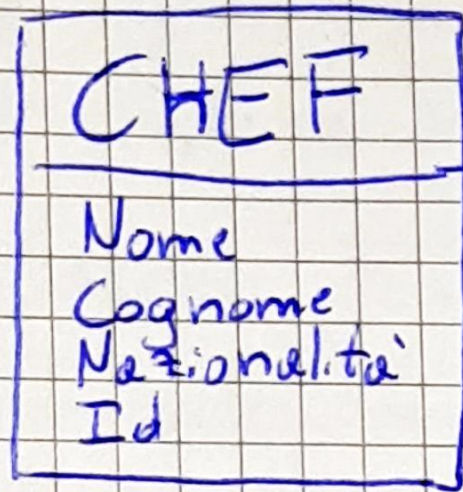 CHEF
Nome
Cognome
Nazionalità
Id